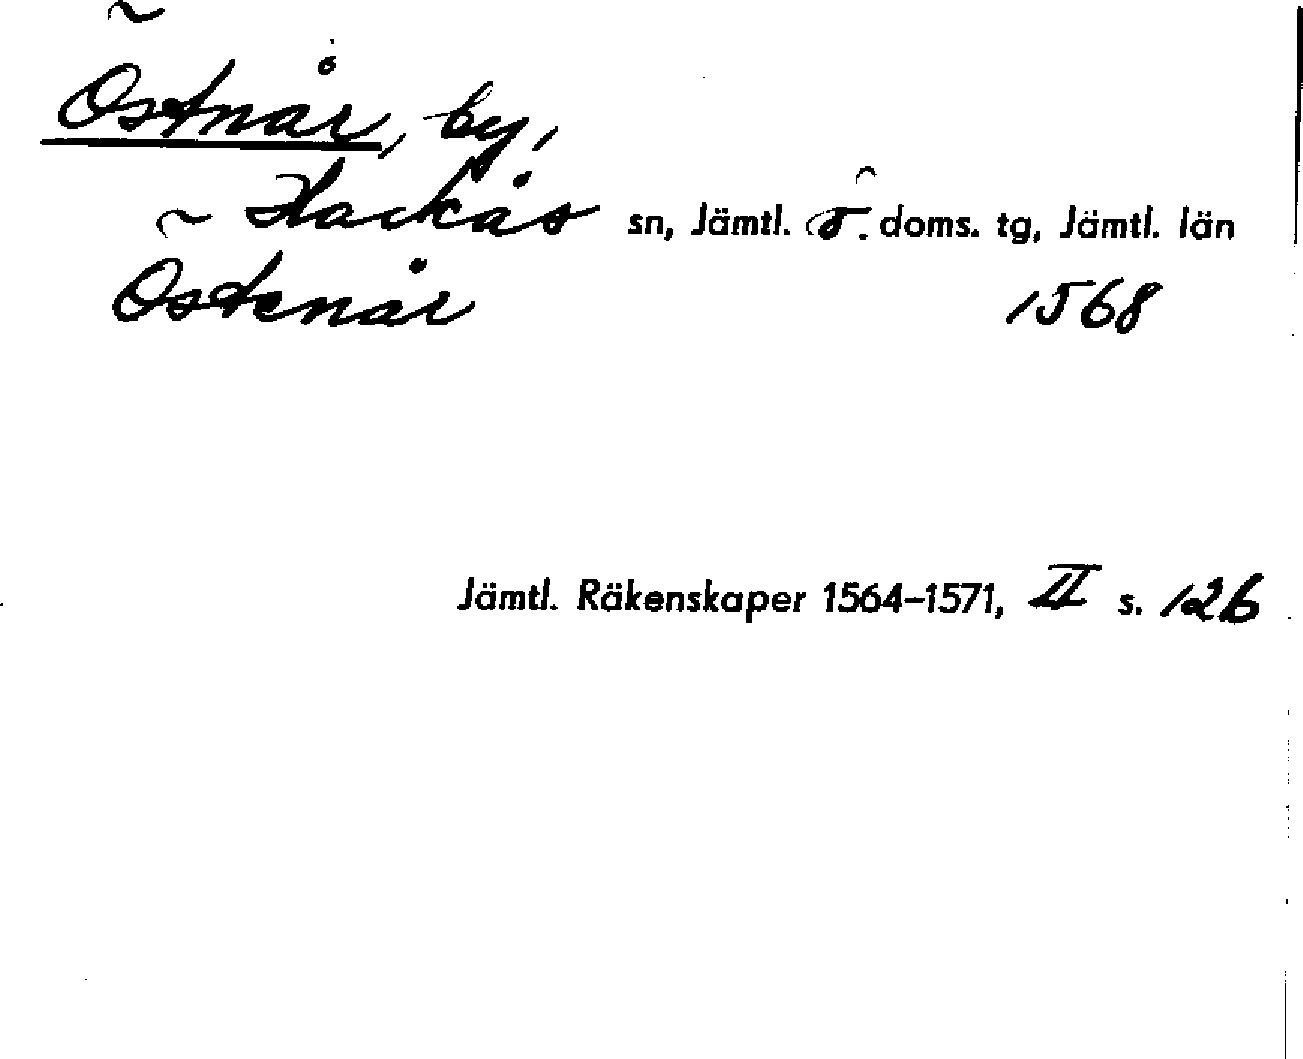 Östnår, by,
Hackås sn, Jämtl. ö. doms. tg, Jämtl. län
Östenår 1568
Jämtl. Räkenskaper 1564–1571, II s. 126